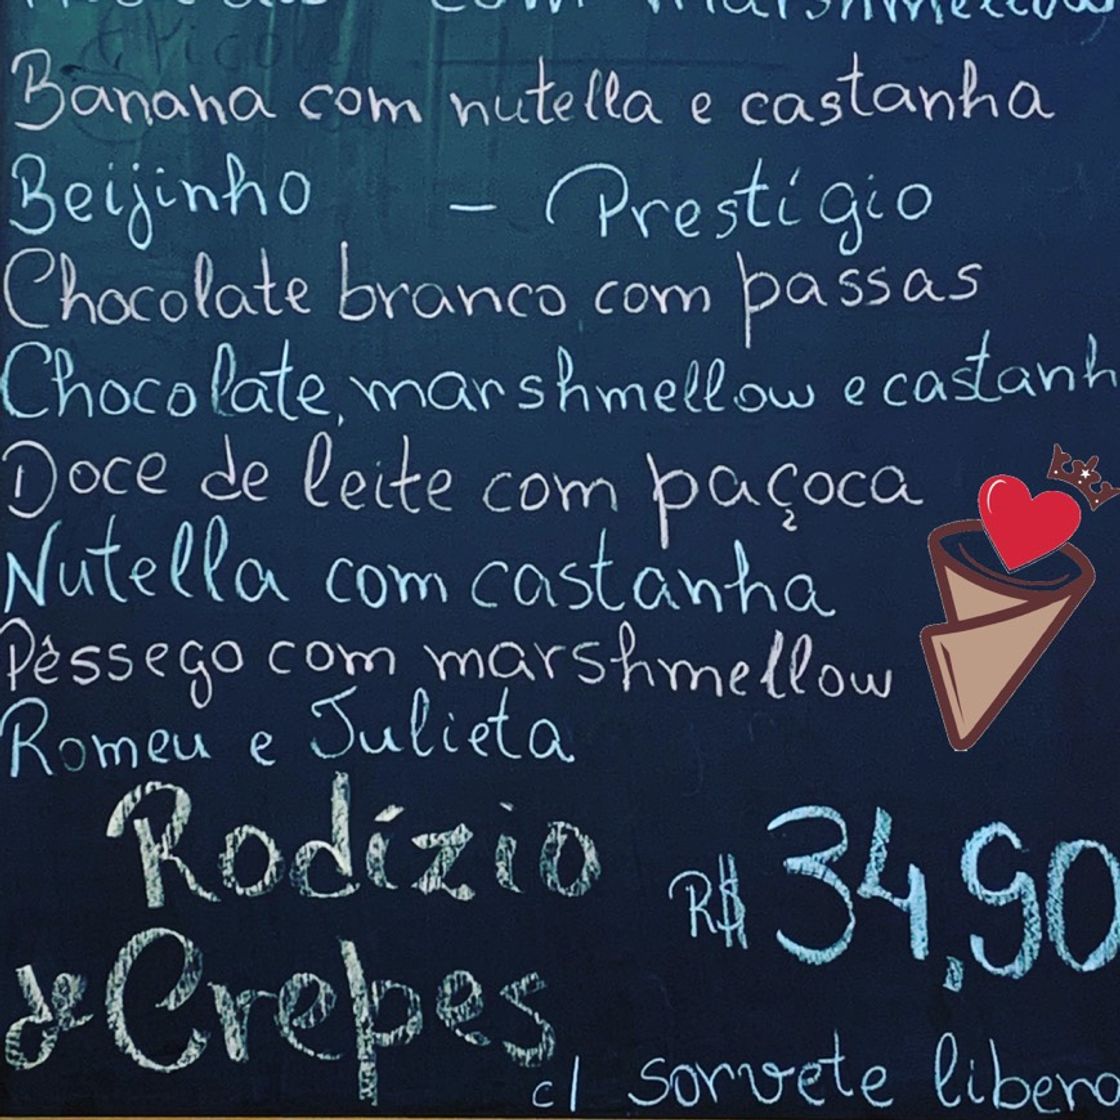 com marshmellow
Banana com nutella e castanha
Beijinho - Prestígio
Chocolate branco com passas
Chocolate, marshmellow e castanh
Doce de leite com paçoca
Nutella com castanha
Pêssego com marshmellow
Romeu e Julieta
Rodízio
R$ 34,90
de Crepes
c/ sorvete libero